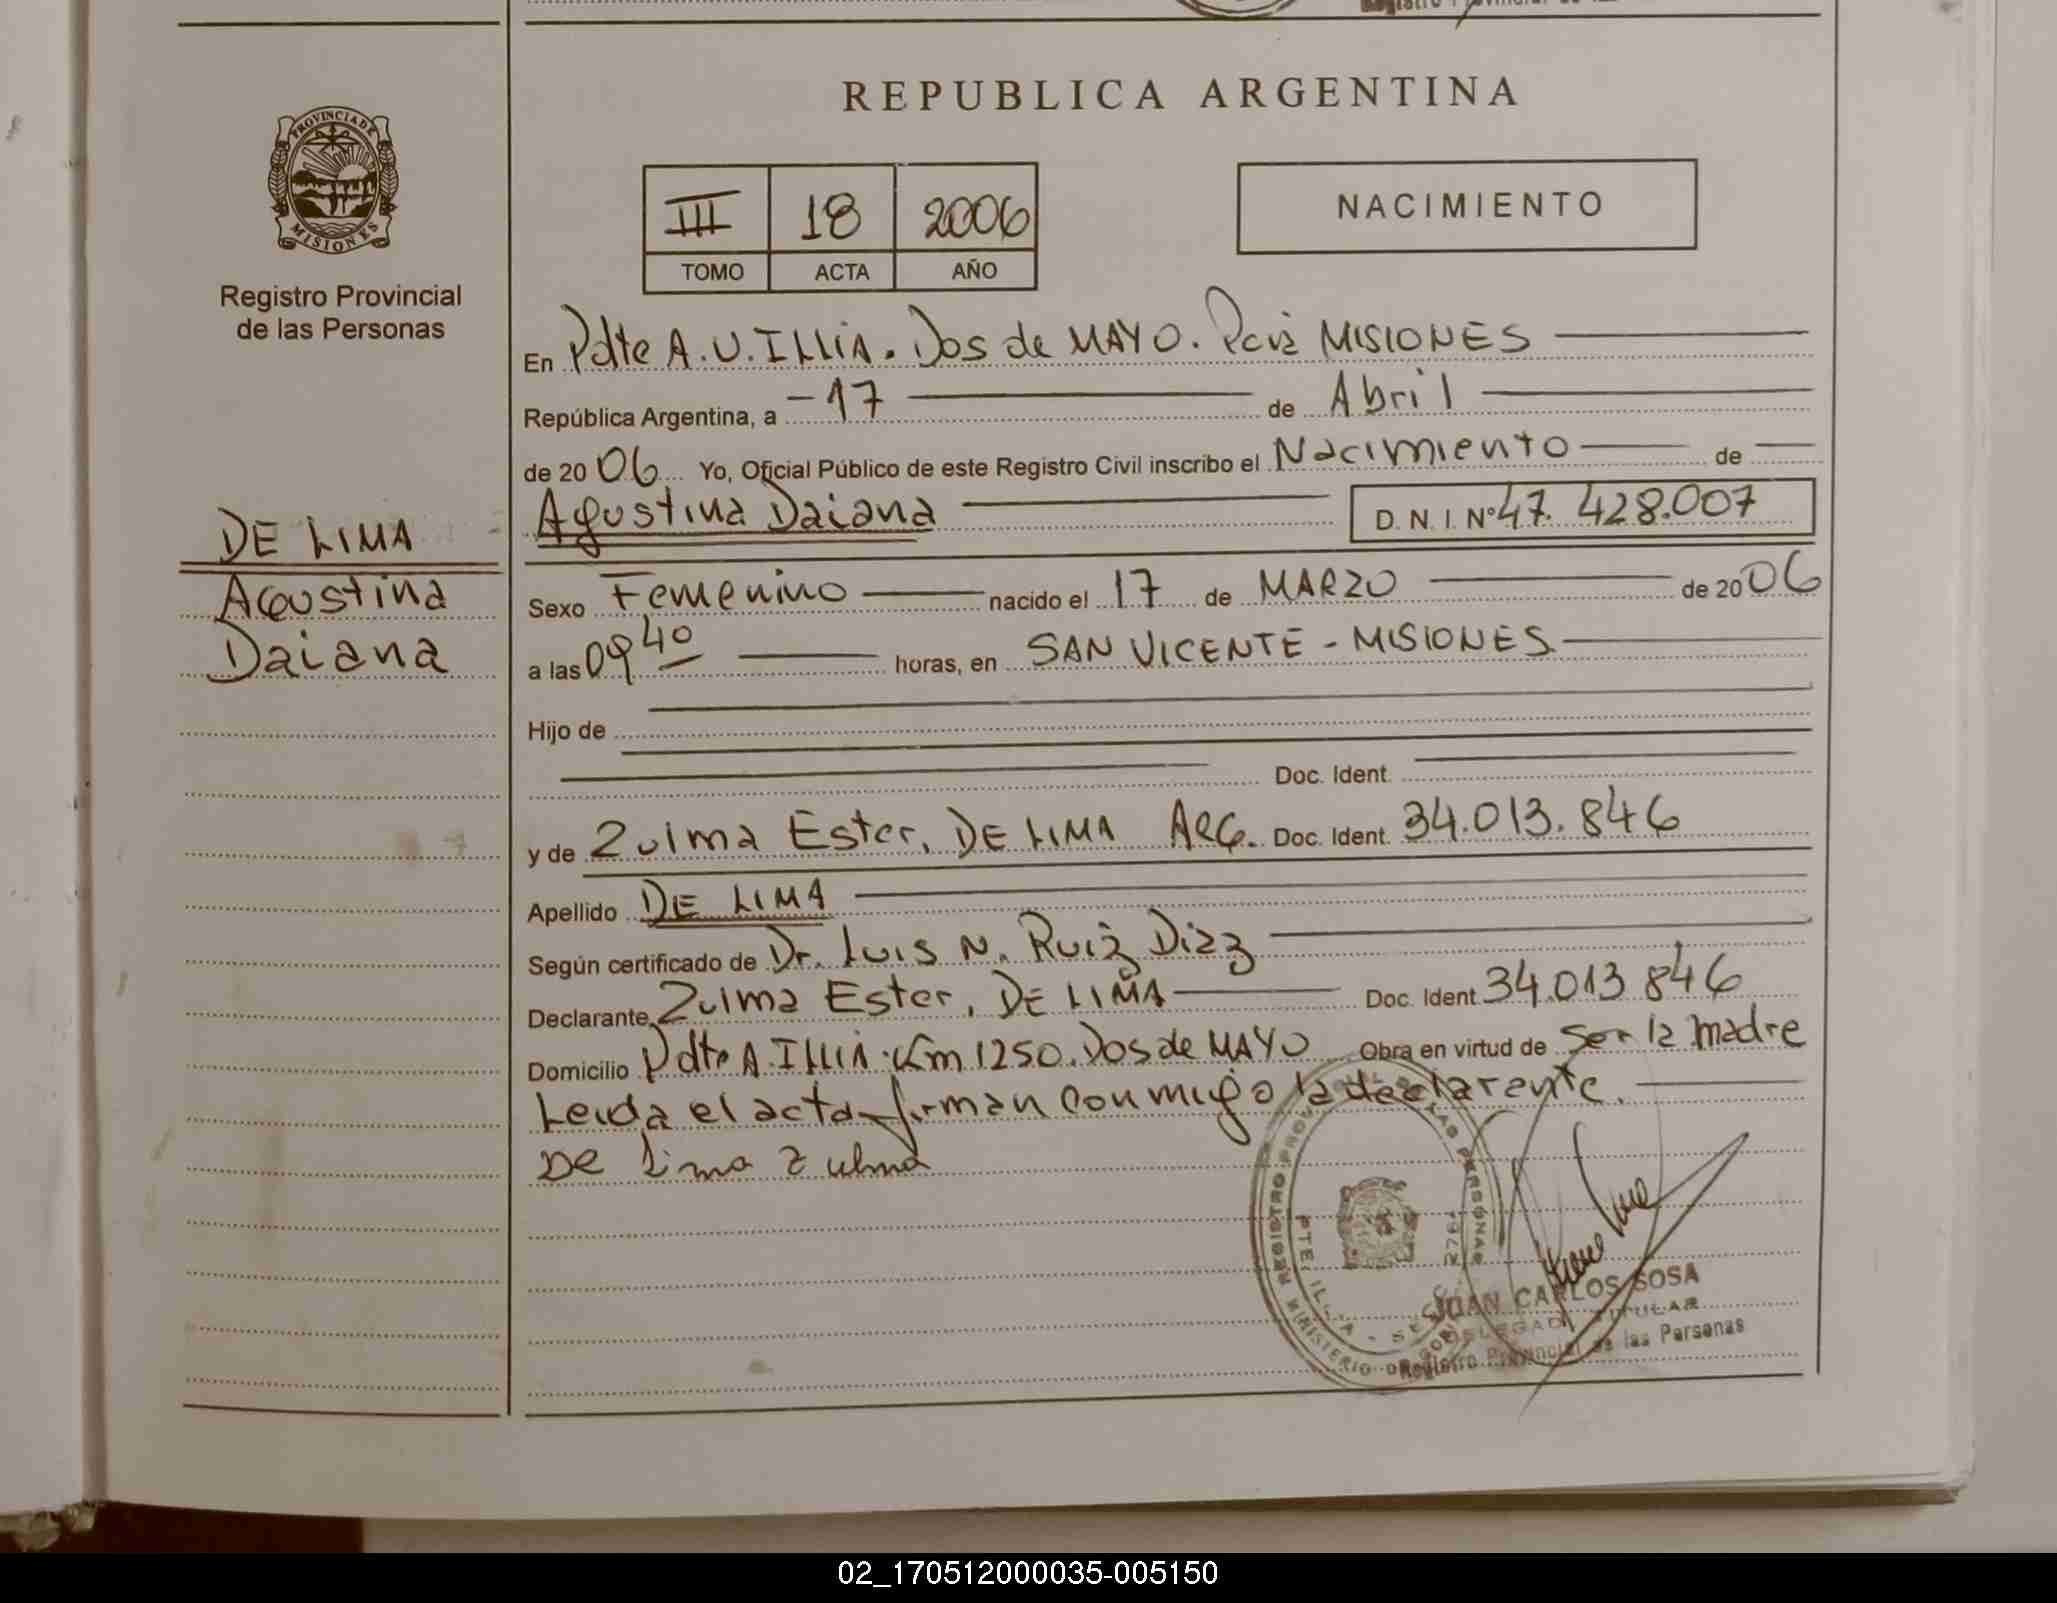 REPUBLICA ARGENTINA
PROVINCIA DE
MISIONES
Registro Provincial
de las Personas
III 18 2006
TOMO ACTA AÑO
NACIMIENTO
En Pdte A.U.ILLIA. Dos de MAYO. Pcia MISIONES
República Argentina, a -17 de Abril
de 2006 Yo, Oficial Público de este Registro Civil inscribo el Nacimiento de
Agustina Daiana D.N.I. Nº 47.428.007
DE LIMA
Agustina
Daiana
Sexo Femenino nacido el 17 de MARZO de 2006
a las 09 40 horas, en SAN VICENTE - MISIONES
Hijo de
Doc. Ident.
y de Zulma Ester, DE LIMA ARG. Doc. Ident. 34.013.846
Apellido DE LIMA
Según certificado de Dr. Luis N. Ruiz Diaz
Declarante Zulma Ester, DE LIMA Doc. Ident. 34.013 846
Domicilio Pdte A. ILLIA. Km 1250. Dos de MAYO Obra en virtud de Ser la madre
Leida el acta firman conmigo la declarante.
De Lima Zulma
JUAN CARLOS SOSA
DELEGADO TITULAR
Registro Provincial de las Personas
02_170512000035-005150